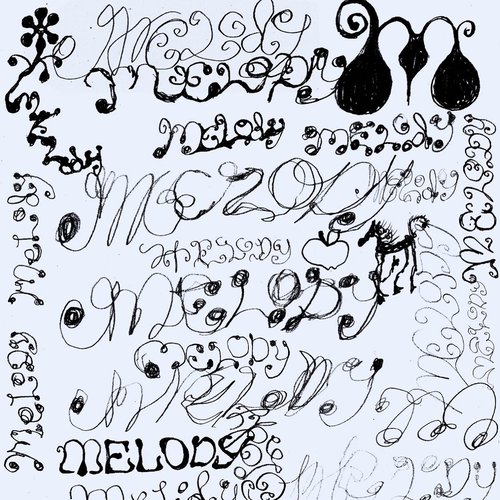 Melody
MELODY
M
Melody
MELODY
MELODY
Melody
MELODY
Melody
MELODY
Melody
MELODY
MELODY
Melody
MELODY
Melody
MELODY
MELODY
MELODY
MELODY
Melody